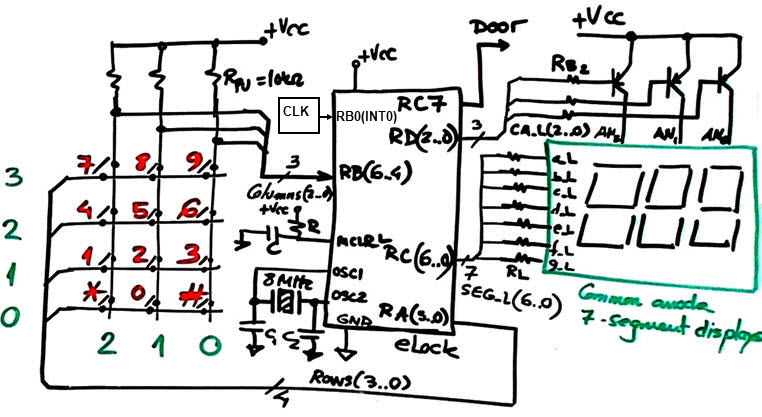 +Vcc
RPU = 10kΩ
CLK
+Vcc
RB0(INT0)
RC7
Door
+Vcc
RB2
RD(2..0)
3
CA_L(2..0)
AN2
AN1
AN0
3
RB(6..4)
Columns(2..0)
+Vcc
R
C
MCLR_L
OSC1
8MHz
OSC2
C1
C2
GND
RC(6..0)
7
SEG_L(6..0)
RL
RA(3..0)
eLock
a_L
b_L
c_L
d_L
e_L
f_L
g_L
Common anode
7-segment displays
3
7 8 9
2
4 5 6
1
1 2 3
0
* 0 #
2 1 0
Rows(3..0)
4